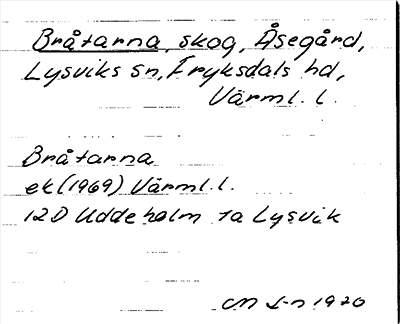 Bråtarna, skog, Åsegård,
Lysviks sn, Fryksdals hd,
Värml. l.
Bråtarna
ek (1969) Värml. l.
12D Uddeholm 1a Lysvik
1970